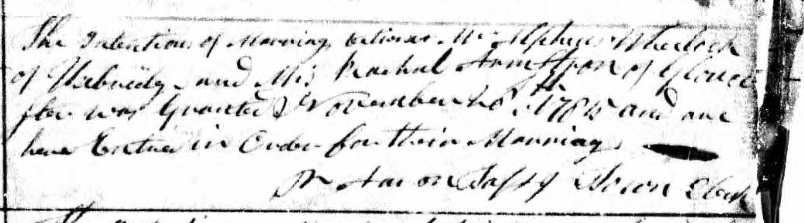 The Intentions of Marriag between Mr Alpheus Wheelock
of Uxbridg and Mis Rachal of Glouce
ster was Granted November 1785 and are
here Entred in Order for their Marriag
pr Aaron Taft Town Clerk